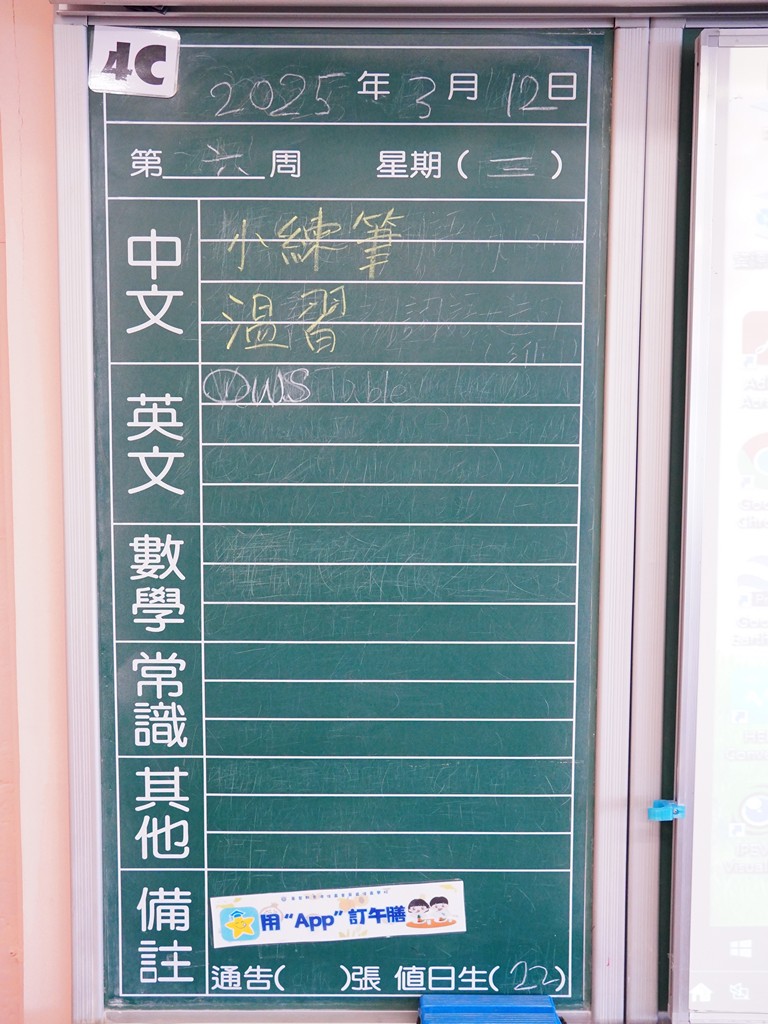 4C
2025年3月12日
第六周 星期（三）
中文
小練筆
溫習
英文
①WS Table
數學
常識
其他
備註
用“App”訂午膳
通告( )張 值日生(22)